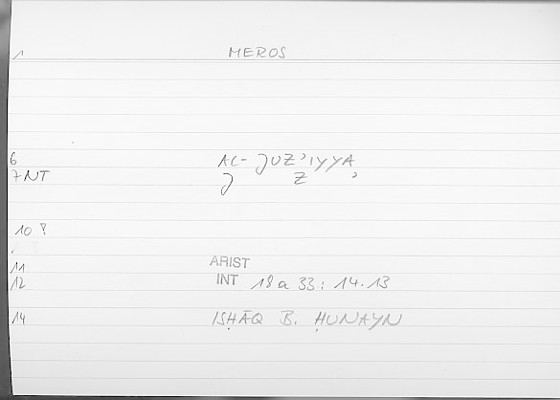 1 MEROS
6 AL-JUZ'IYYA
7 NT J Z '
10 ?
11 ARIST
12 INT 18a 33: 14.13
14 ISḤĀQ B. ḤUNAYN